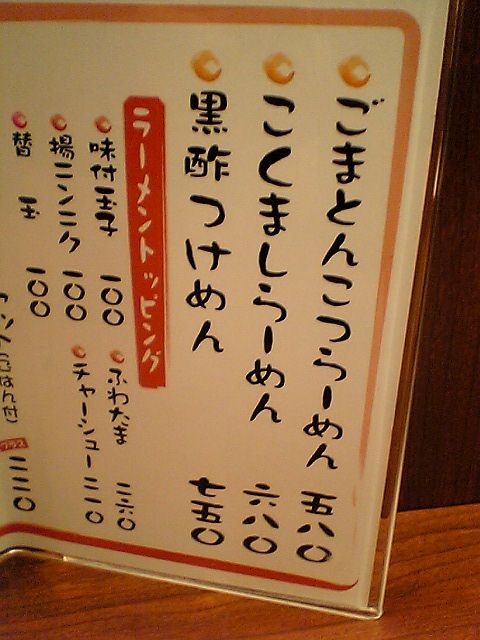 ごまとんこつらーめん 五八〇
こくましらーめん 六八〇
黒酢つけめん 七五〇
ラーメントッピング
味付玉子 一〇〇
ふわたま
揚ニンニク 一〇〇
チャーシュー 二一〇
替玉 一〇〇
(ごはん付)
プラス